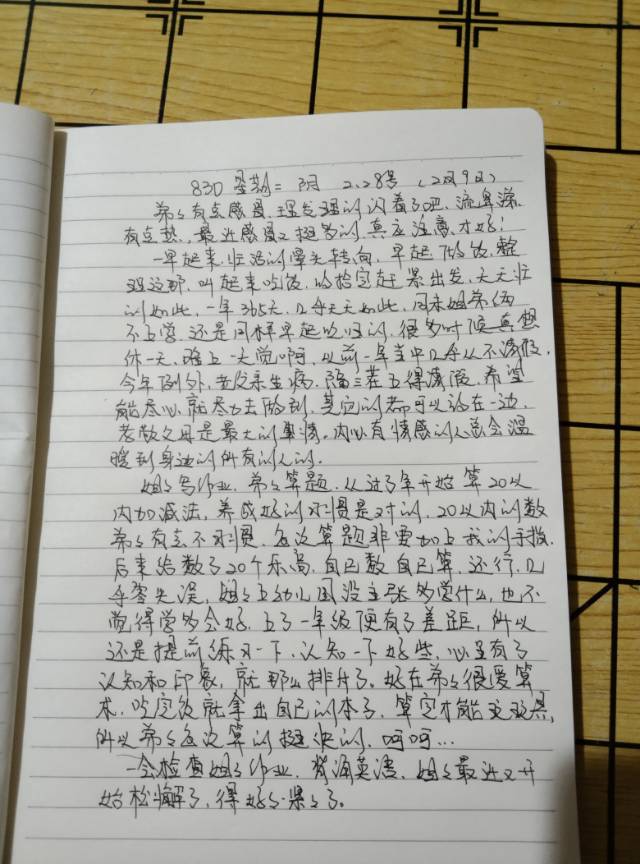 830 星期二 阴 2.28号 (2月9日)
弟弟有点感冒,理发理的闪着了吧,流鼻涕,
有点热,最近感冒又挺多的,真应注意才好!
一早起来,忙活的晕头转向,早起,做饭,整
理这那,叫起来吃饭,的拾完赶紧出发,天天忙
的如此,一年365天,几乎天天如此,周末姐弟俩
不上学,还是同样早起吃喝的,很多时候真想
休一天,睡上一大觉啊,以前一年当中几乎从不请假,
今年例外,老父亲生病,隔三差五得请假,希望
能尽心,就尽力去做到,其它的都可以论在一边,
孝敬父母是最大的事情,内心有情感的人总会温
暖到身边的所有的人的.
姐姐写作业,弟弟算题,从过了年开始算20以
内加减法,养成好的习惯是对的,20以内的数
弟弟有点不习惯,每次算题非要加上我的手指,
后来给数了20个乐高,自己数自己算,还行,几
乎零失误,姐姐上幼儿园没主张多学什么,也不
觉得学多会好,上了一年级便有了差距,所以
还是提前练习一下,认知一下好些,心里有了
认知和印象,就那么排斥了.好在弟弟很爱算
术,吃完饭就拿出自己的本子,算完才能玩玩具,
所以弟弟每次算的挺快的,呵呵...
一会检查姐姐作业,背诵英语,姐姐最近又开
始松懈了,得好好紧紧了.